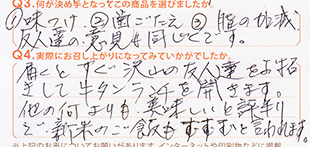 Q3.何が決め手となってこの商品を選びましたか。
①味つけ ②歯ごたえ ③脂の加減
友人達の意見も同じくです。
Q4.実際にお召し上がりになってみていかがでしたか。
届くとすぐ沢山の友人達をお招
きして牛タンランチを開きます。
他の何よりも美味しいと評判り
で新米のご飯もすすむと言われます。
※上記のお声についてお願いがあります。インターネットや印刷物などに掲載